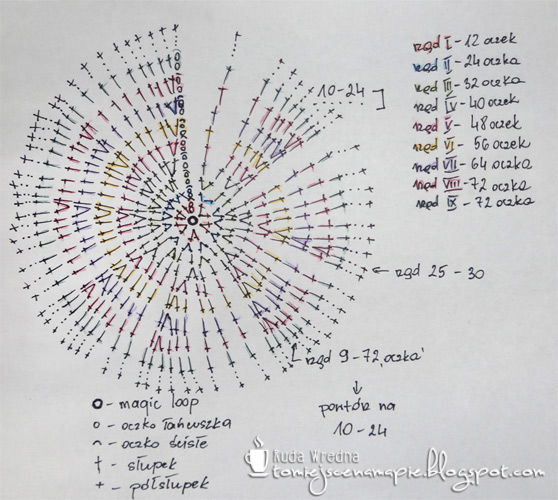 rząd I - 12 oczek
rząd II - 24 oczka
rząd III - 32 oczka
rząd IV - 40 oczek
rząd V - 48 oczek
rząd VI - 56 oczek
rząd VII - 64 oczka
rząd VIII - 72 oczka
rząd IX - 72 oczka
10-24
← rząd 25-30
rząd 9-72 oczka
↓
powtórz na
10-24
O - magic loop
o - oczko łańcuszka
⌒ - oczko ścisłe
† - słupek
+ - półsłupek
Ruda Wredna
tomiejscenamapie.blogspot.com